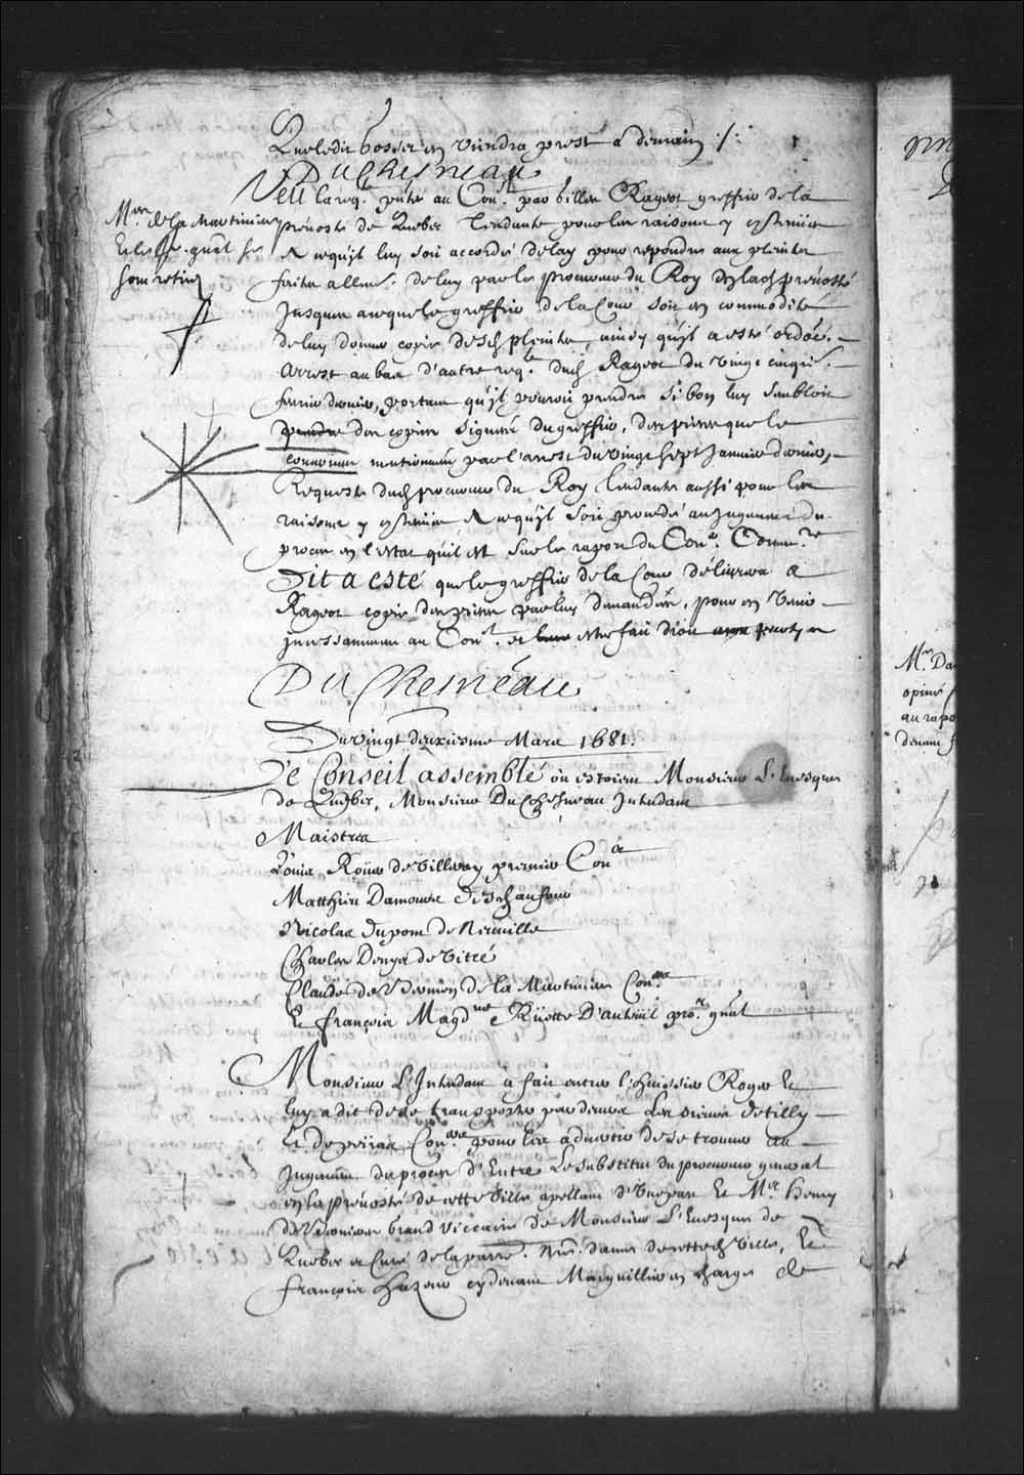 Que ledit bosser en viendra prest a demain ./.
DuChesneau
Veu la reqte. pnteé au Conl. par billes Rageot greffier de la
Mrs. de la Martiniere
et le pr. gnāl se
sont retirez
prévosté de Quebec Tendante pour les raisons y contenües
A ce qu'il luy soit accordé delay pour repondre aux pleintes
faites allenc. de luy par le procureur du Roy en lad. prévosté
Jusques a ce que le greffier de la Cour soit en commodité
de luy donner copie desd. pleintes, ainsy qu'il a esté ordoné.
Arrest au bas d'autre reqte. dud. Rageot du vingt cinqe.
fevrier dernier, portant qu'il pouroit prendre si bon luy sembloit
des copies signeés du greffier, des pieces que le
mentionneés par l'arrest du vingt sept Janvier dernier,
Requeste dud. procureur du Roy tendante aussi pour les
raisons y contenües A ce qu'il soit procedé au Jugement du
proces en l'estat qu'il est sur le raport du Conr. Commre
Dit a esté que le greffier de la Cour delivrera a
Rageot copie des pieces par luy demandées, pour en venir
incessamment au Conl. et estre fait droit
DuChesneau
Du vingt deuxiesme Mars 1681.
Le Conseil assemblé ou estoient Monsieur L'Evesque
de Quebec, Monsieur DuChesneau Intendant
Maistres
Louis Roüer de Villeray premier Conr
Matthieu Damours Deschaufour
Nicolas dupont de Neuville
Charles Denys de Vitré
Claude de Bermen de la Martiniere Conrs.
Et françois Magdne Rüette D'auteüil pror. gnāl
Monsieur L'Intendant a fait entrer l'huissier Roger Et
luy a dit de se transporter par devers Les sieurs de Tilly
Et de peiras Conrs. pour les advertir de se trouver au
Jugement du proces d'Entre Le substitut du procureur general
en la prévosté de cette ville apellant d'Une part Et Mre. henry
de Bernieres Grand Viccaire de Monsieur L'Evesque de
Quebec et Curé de la parre. nre. dame de cetted. ville, Et
françois hazeur cy devant Marguillier en charge de
Mr. Da
opiné
au rapo
devant